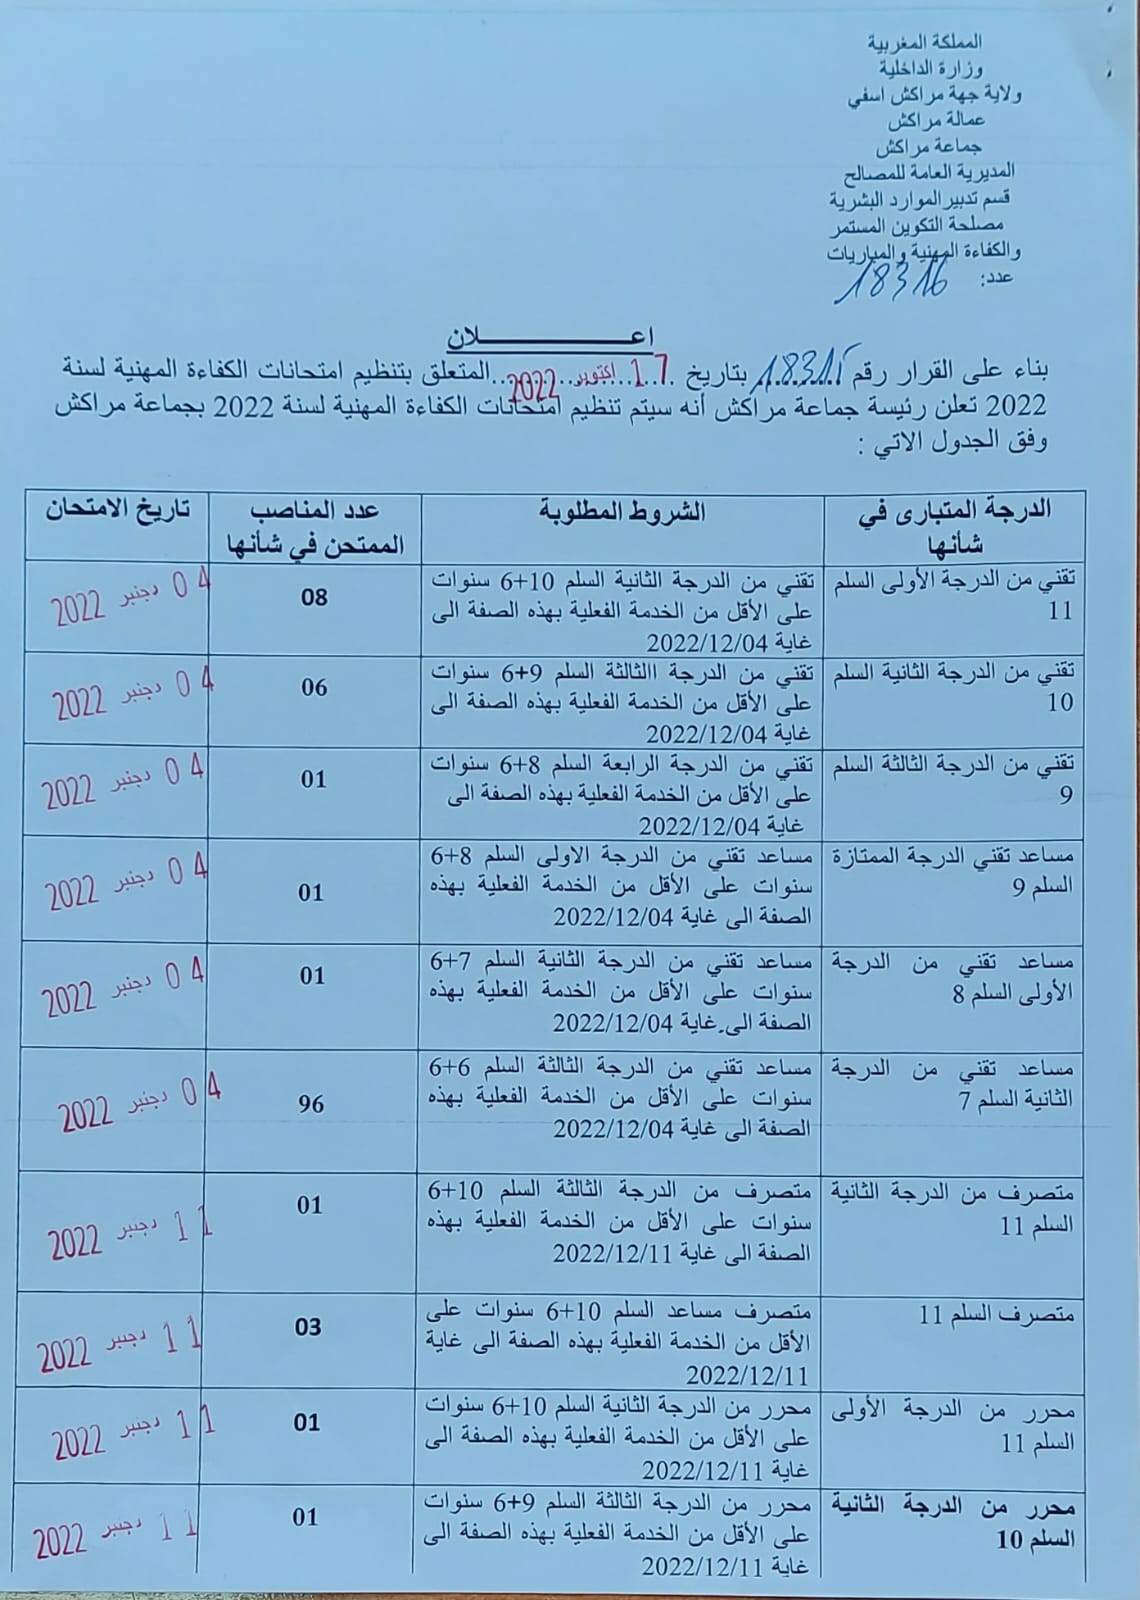 المملكة المغربية
وزارة الداخلية
ولاية جهة مراكش اسفي
عمالة مراكش
جماعة مراكش
المديرية العامة للمصالح
قسم تدبير الموارد البشرية
مصلحة التكوين المستمر
والكفاءة المهنية والمباريات
عدد: 18316
اعــــــــــــلان
بناء على القرار رقم 18315 بتاريخ 17 اكتوبر 2022 المتعلق بتنظيم امتحانات الكفاءة المهنية لسنة
2022 تعلن رئيسة جماعة مراكش أنه سيتم تنظيم امتحانات الكفاءة المهنية لسنة 2022 بجماعة مراكش
وفق الجدول الاتي :
الدرجة المتبارى في
شأنها
الشروط المطلوبة
عدد المناصب
الممتحن في شأنها
تاريخ الامتحان
تقني من الدرجة الأولى السلم
11
تقني من الدرجة الثانية السلم 10+6 سنوات
على الأقل من الخدمة الفعلية بهذه الصفة الى
غاية 2022/12/04
08
04 دجنبر 2022
تقني من الدرجة الثانية السلم
10
تقني من الدرجة االثالثة السلم 9+6 سنوات
على الأقل من الخدمة الفعلية بهذه الصفة الى
غاية 2022/12/04
06
04 دجنبر 2022
تقني من الدرجة الثالثة السلم
9
تقني من الدرجة الرابعة السلم 8+6 سنوات
على الأقل من الخدمة الفعلية بهذه الصفة الى
غاية 2022/12/04
01
04 دجنبر 2022
مساعد تقني الدرجة الممتازة
السلم 9
مساعد تقني من الدرجة الاولى السلم 8+6
سنوات على الأقل من الخدمة الفعلية بهذه
الصفة الى غاية 2022/12/04
01
04 دجنبر 2022
مساعد تقني من الدرجة
الأولى السلم 8
مساعد تقني من الدرجة الثانية السلم 7+6
سنوات على الأقل من الخدمة الفعلية بهذه
الصفة الى غاية 2022/12/04
01
04 دجنبر 2022
مساعد تقني من الدرجة
الثانية السلم 7
مساعد تقني من الدرجة الثالثة السلم 6+6
سنوات على الأقل من الخدمة الفعلية بهذه
الصفة الى غاية 2022/12/04
96
04 دجنبر 2022
متصرف من الدرجة الثانية
السلم 11
متصرف من الدرجة الثالثة السلم 10+6
سنوات على الأقل من الخدمة الفعلية بهذه
الصفة الى غاية 2022/12/11
01
11 دجنبر 2022
متصرف السلم 11
متصرف مساعد السلم 10+6 سنوات على
الأقل من الخدمة الفعلية بهذه الصفة الى غاية
2022/12/11
03
11 دجنبر 2022
محرر من الدرجة الأولى
السلم 11
محرر من الدرجة الثانية السلم 10+6 سنوات
على الأقل من الخدمة الفعلية بهذه الصفة الى
غاية 2022/12/11
01
11 دجنبر 2022
محرر من الدرجة الثانية
السلم 10
محرر من الدرجة الثالثة السلم 9+6 سنوات
على الأقل من الخدمة الفعلية بهذه الصفة الى
غاية 2022/12/11
01
11 دجنبر 2022